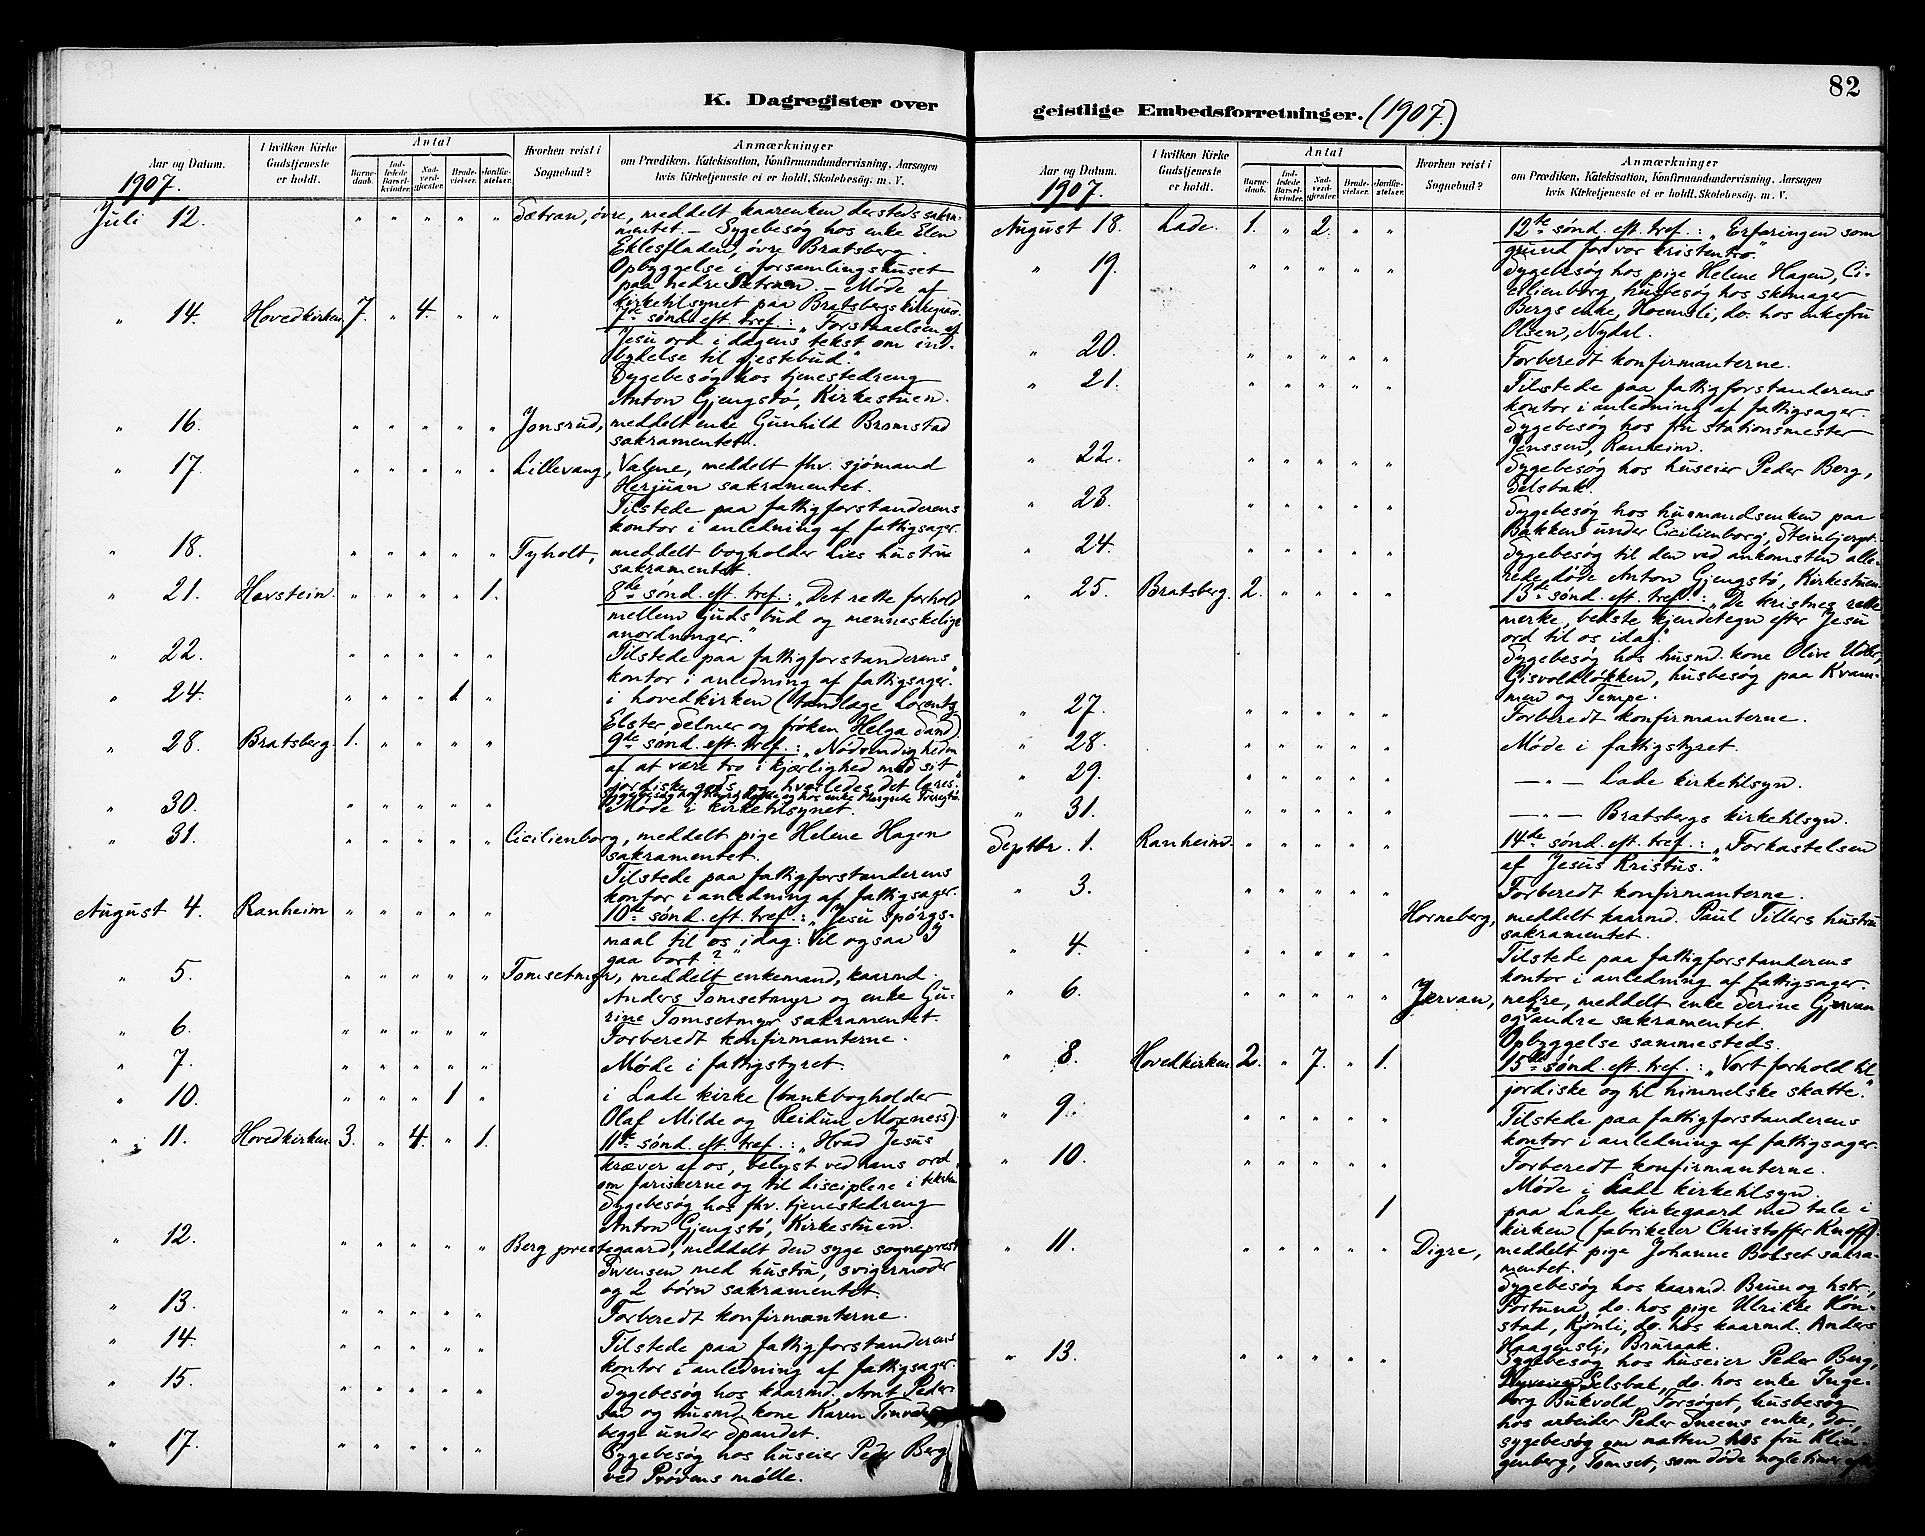 82
K. Dagregister over
geistlige Embedsforretninger. (1907.)
Aar og Datum.
I hvilken Kirke Gudstjeneste er holdt.
Antal
Barnedaab.
Indledede Barselkvinder.
Nadverdgjester.
Brudevielser.
Jordfæstelser.
Hvorhen reist i Sognebud?
Anmærkninger
om Prædiken, Katekisation, Konfirmandundervisning, Aarsagen
hvis Kirketjeneste ei er holdt, Skolebesøg. m. V.
1907.
Juli 12. " " " " " Sætran, øvre, meddelt kaarenken dersteds sakra-
mentet. – Sygebesøg hos enke Elen
Eklesfladen, øvre Bratsberg.
Opbyggelse i forsamlingshuset
paa nedre Sætran. – Møde af
kirketilsynet paa Bratsbergs kirkegaard.
" 14. Hovedkirken 7. " 4. " " 7de sønd. eft. tref.: „Forstaaelsen af
Jesu ord i dagens tekst om ind-
bydelse til gjestebud."
Sygebesøg hos tjenestedreng
Anton Gjengstø, Kirkestuen.
" 16. " " " " " Jonsrud, meddelt enke Gunhild Bromstad
sakramentet.
" 17. " " " " " Lillevang, Valene, meddelt fhv. sjømand
Herjuan sakramentet.
Tilstede paa fattigforstanderens
kontor i anledning af fattigsager.
" 18. " " " " " Tyholt, meddelt bogholder Lies hustru
sakramentet.
" 21. Havstein. " " " " 1. 8de sønd. eft. tref.: „Det rette forhold
mellem Guds bud og menneskelige
anordninger."
" 22. " " " " " Tilstede paa fattigforstanderens
kontor i anledning af fattigsager.
" 24. " " " 1 " i hovedkirken (tandlæge Lorentz
Elster, Selmer og frøken Helga Sand)
" 28. Bratsberg. 1. " " " " 9de sønd. eft. tref.: „Nødvendigheden
af at være tro i kjærlighed med sit
jordiske gods og hvorledes det læres."
" 30. " " " " " Møde i kirketilsynet.
" 31. " " " " " Cicilienborg, meddelt pige Helene Hagen
sakramentet.
Tilstede paa fattigforstanderens
kontor i anledning af fattigsager.
August 4. Ranheim " " " " " 10de sønd. eft. tref.: „Jesu spørgs-
maal til os idag: Vil ogsaa I
gaa bort?"
" 5. " " " " " Tomsetmyr, meddelt enkemand, kaarmd.
Anders Tomsetmyr og enke Gu-
rine Tomsetmyr sakramentet.
" 6. " " " " " Forberedt konfirmanterne.
" 7. " " " " " Møde i fattigstyret.
" 10. " " " 1 " i Lade kirke (bankbogholder
Olaf Milde og Reidun Moxness).
" 11. Hovedkirken 3. " 4. " 1. 11te sønd. eft. tref.: „Hvad Jesus
kræver af os, belyst ved hans ord
om farisæerne og til disciplene i teksten.
Sygebesøg hos fhv. tjenestedreng
Anton Gjengstø, Kirkestuen.
" 12. " " " " " Berg prestegaard, meddelt den syge sogneprest
Svensen med hustru, svigermoder
og 2 børn sakramentet.
" 13. " " " " " Forberedt konfirmanterne.
" 14. " " " " " Tilstede paa fattigforstanderens
kontor i anledning af fattigsager.
" 15. " " " " " Sygebesøg hos kaarmd. Arnt Peder-
sen og husmd. kone Karen
begge under Spandet.
" 17. " " " " " Sygebesøg hos huseier Peder Berg
ved Prøvens mølle.
Aar og Datum.
I hvilken Kirke Gudstjeneste er holdt.
Antal
Barnedaab.
Indledede Barselkvinder.
Nadverdgjester.
Brudevielser.
Jordfæstelser.
Hvorhen reist i Sognebud?
Anmærkninger
om Prædiken, Katekisation, Konfirmandundervisning, Aarsagen
hvis Kirketjeneste ei er holdt, Skolebesøg. m. V.
1907.
August 18. Lade. 1. " 2. " " 12te sønd. eft. tref.: „Erfaringen som
grund for vor kristentro."
" 19. " " " " " Sygebesøg hos pige Helene Hagen, Ci-
cilienborg, husbesøg hos skomager
Bergs enke, Hoemsli, do. hos enkefru
Olsen, Nydal.
" 20. " " " " " Forberedt konfirmanterne.
" 21. " " " " " Tilstede paa fattigforstanderens
kontor i anledning af fattigsager.
Sygebesøg hos fru stationsmester
Jenssen, Ranheim.
" 22. " " " " " Sygebesøg hos huseier Peder Berg,
Selsbak.
" 23. " " " " " Sygebesøg hos husmandsenken paa
Bakken under Cicilienborg, Steinbjergt.
" 24. " " " " " Sygebesøg til den ved ankomsten alle-
rede døde Anton Gjengstø, Kirkestuen.
" 25. Bratsberg. 2. " " " " 13de sønd. eft. tref.: „De kristnes rette
merke, bedste kjendetegn efter Jesu
ord til os idag."
Sygebesøg hos husmd. kone Olive
Gisvoldløkken, husbesøg paa Kvam-
men og Tempe.
" 27. " " " " " Forberedt konfirmanterne.
" 28. " " " " " Møde i fattigstyret.
" 29. " " " " " — " — Lade kirketilsyn.
" 31. " " " " " — " — Bratsbergs kirketilsyn.
Septbr. 1. Ranheim. " " " " " 14de sønd. eft. tref.: „Forkastelsen
af Jesus Kristus."
" 3. " " " " " Forberedt konfirmanterne.
Horneberg, meddelt kaarmd. Paul Tillers hustru
sakramentet.
" 4. " " " " " Tilstede paa fattigforstanderens
kontor i anledning af fattigsager.
" 6. " " " " " Jervan, nedre, meddelt enke Serine Gjervan
og andre sakramentet.
Opbyggelse sammesteds.
" 8. Hovedkirken 2. " 7. " 1. 15de sønd. eft. tref.: „Vort forhold til
jordiske og til himmelske skatte."
" 9. " " " " " Tilstede paa fattigforstanderens
kontor i anledning af fattigsager.
" 10. " " " " " Forberedt konfirmanterne.
Møde i Lade kirketilsyn.
1 paa Lade kirkegaard med tale i
kirken (fabrikeier Christoffer Knoff).
" 11. " " " " " Digre, meddelt pige Johanne Bolset sakra-
mentet.
Sygebesøg hos kaarmd. Bruun og hstr,
Fortuna, do. hos pige Ulrikke Kon-
stad, Kjønli, do. hos kaarmd. Anders
Haagenslj, Bruraak.
" 13. " " " " " Sygebesøg hos huseier Peder Berg,
Selsbak, do. hos enke Inge-
borg Bukvold, Forsøget, husbesøg
hos arbeider Peder Sneens enke, do.,
sygebesøg om natten hos fru Klin-
genberg, Tomset, som døde nogle timer